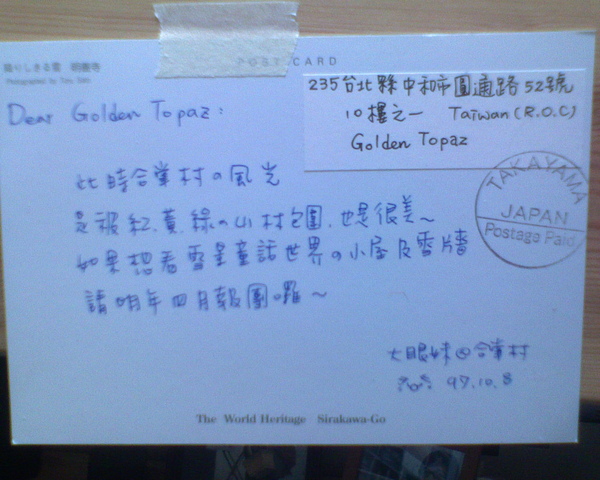 降りしきる雪 明善寺
POST CARD
235台北縣中和市圓通路52號
10樓之一 Taiwan (R.O.C)
Golden Topaz
Dear Golden Topaz:
TAKAYAMA
JAPAN
Postage Paid
此時合掌村の風光
是被紅、黃、綠の山村包圍,也是很美~
如果想看雪星童話世界の小屋及雪牆
請明年四月報團囉~
大眼妹@合掌村
97.10.8
The World Heritage Sirakawa-Go